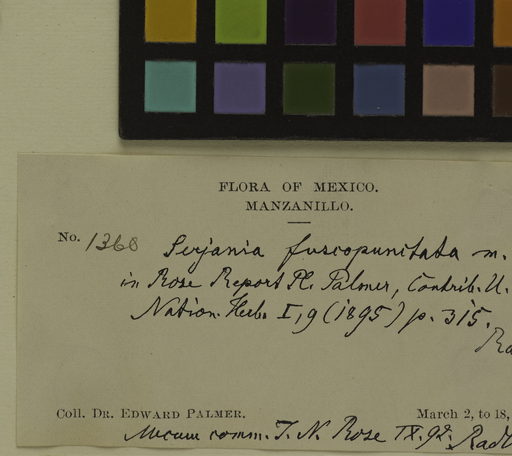 FLORA OF MEXICO.
MANZANILLO.
No. 1360 Serjania fuscopunctata m.
in Rose Report Pl. Palmer, Contrib. U.
Nation. Herb. I, 9 (1895) p. 315.
Ra
Coll. Dr. Edward Palmer. March 2, to 18,
Mecum comm. J. N. Rose IX. 92. Radl